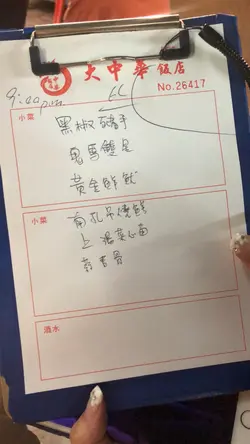 大中華飯店
No.26417
9:00 pm
小菜
黑椒豬手
鬼馬雙星
黃金鮮魷
小菜
南乳吊燒雞
上湯菜心苗
蒜香骨
酒水